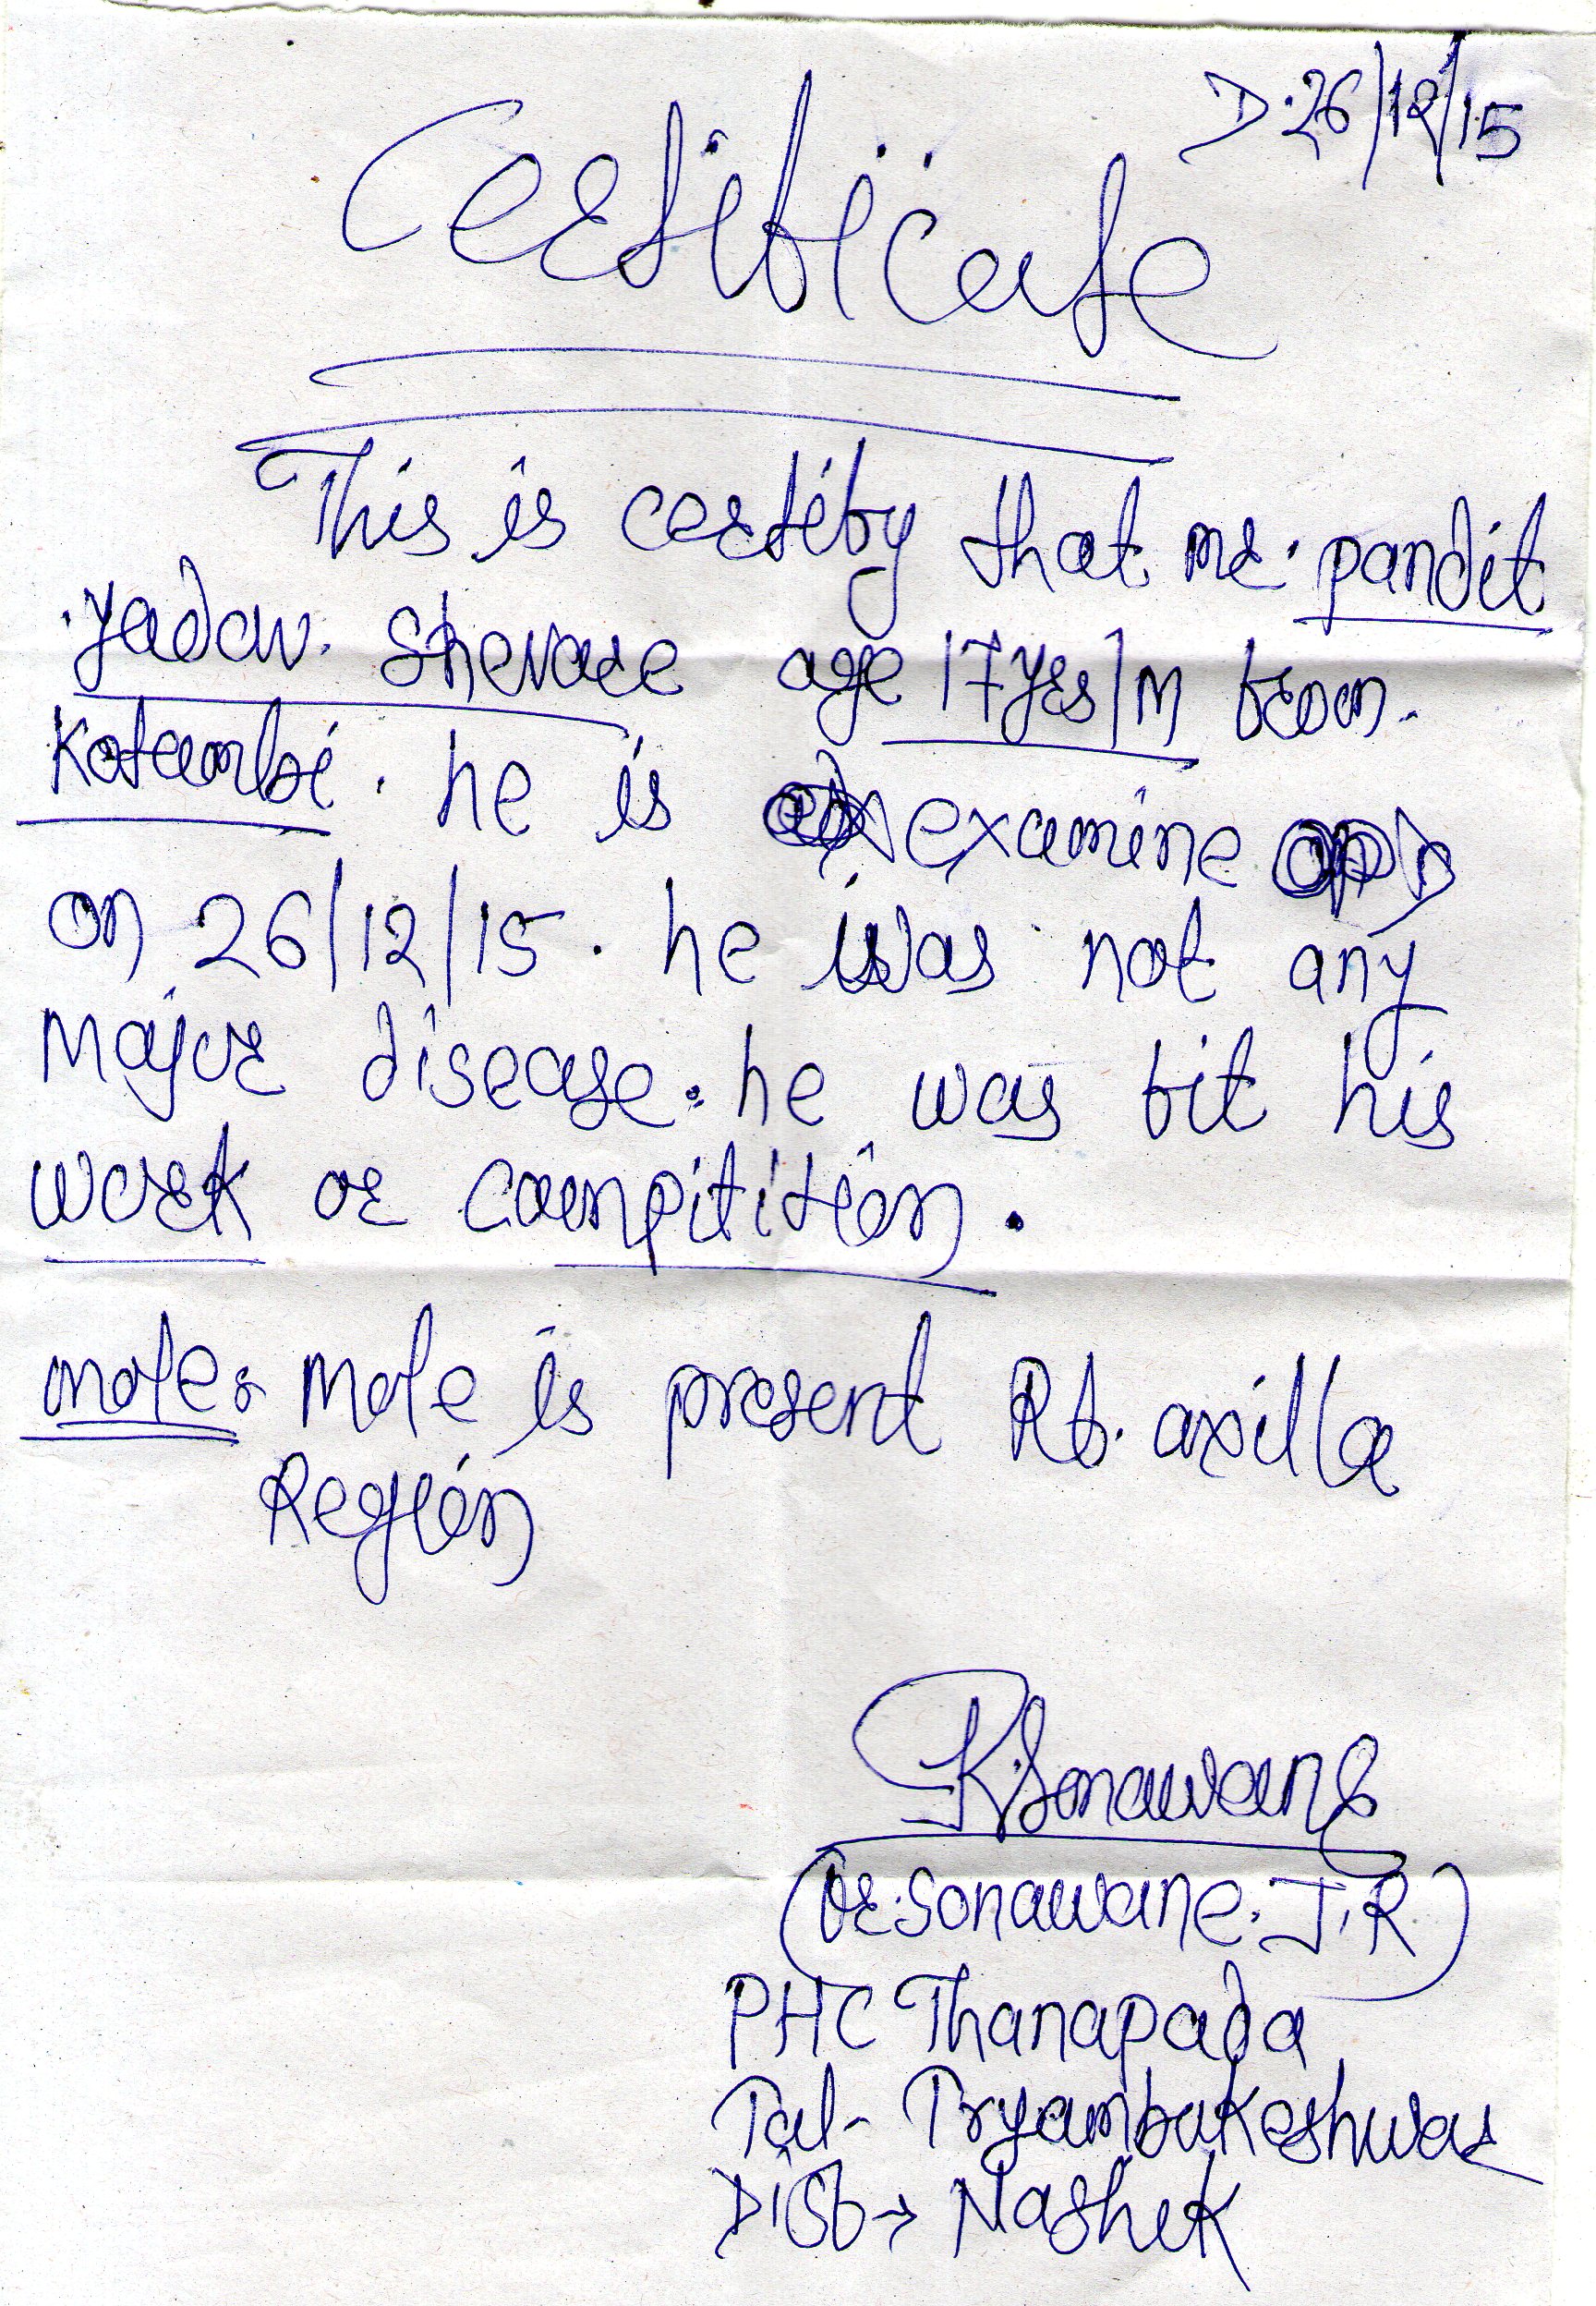 D. 26/12/15
Certificate
This is certify that mr. pandit
yadav. shevare age 17yrs/M from.
Kotambi. he is examine
on 26/12/15. he was not any
Major disease. he was fit his
work or compitition.
note: Mole is present Rt. axilla
Region
R.Sonawane
(Dr. Sonawane. J.R)
PHC Thanapada
Tal- Tryambakeshwar
Dist → Nashik